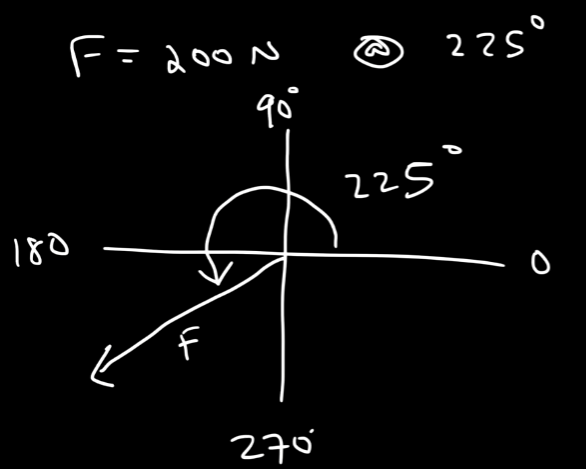 F = 200 N @ 225°
90°
225°
180
0
F
270°